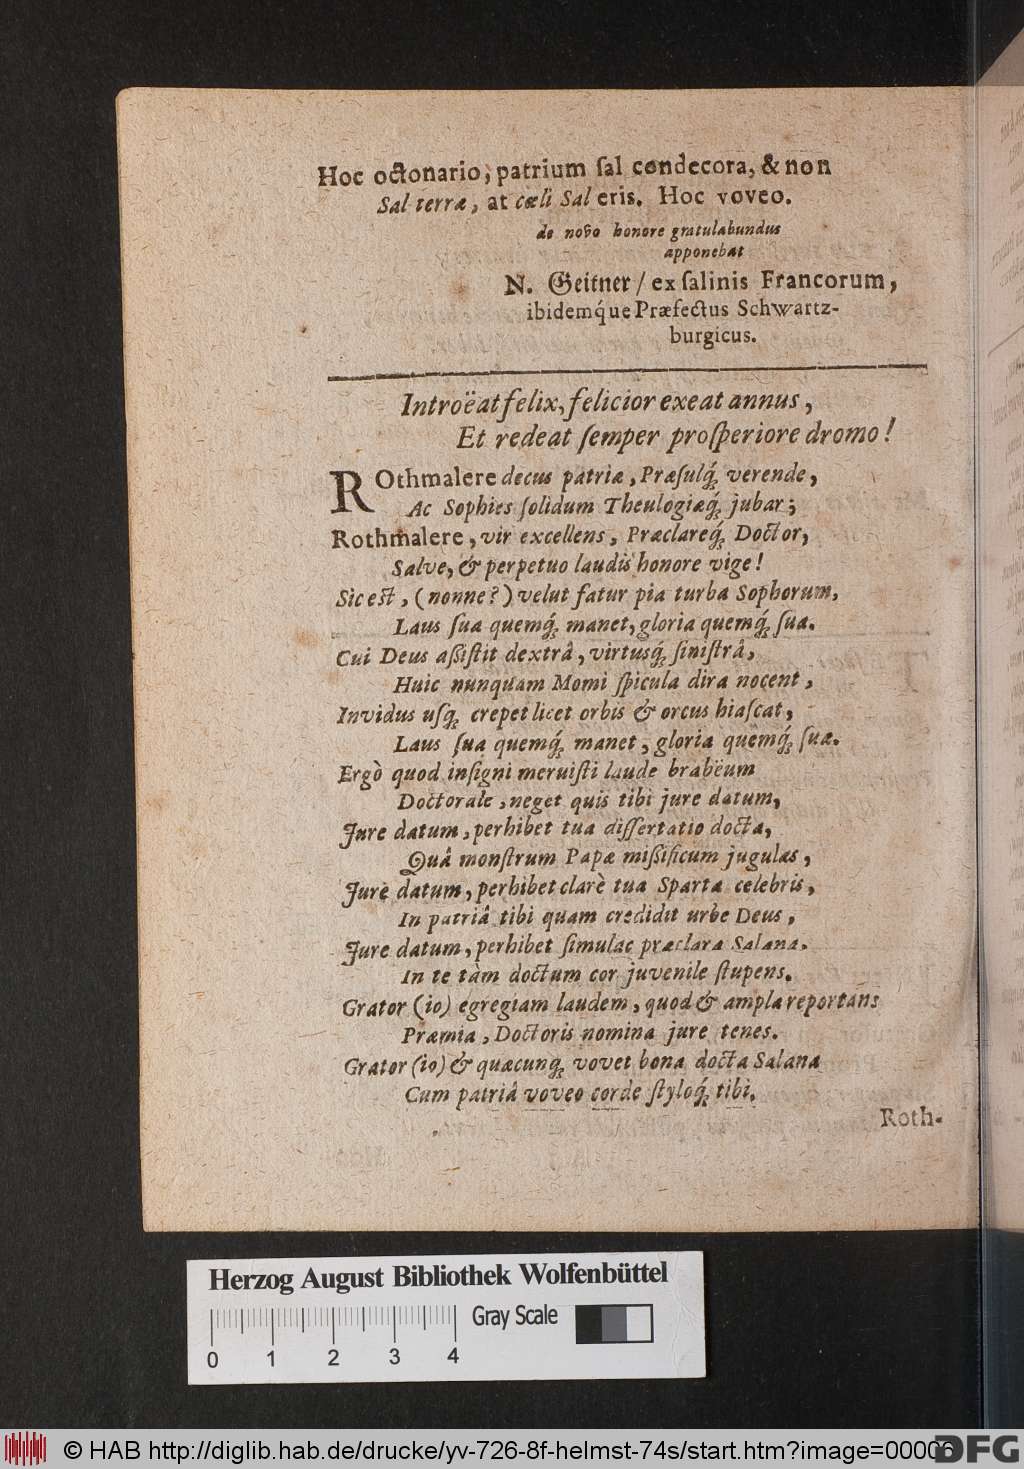 Hoc octonario, patrium ſal condecora, & non
Sal terræ, at cœli Sal eris. Hoc voveo.
de novo honore gratulabundus
apponebat
N. Geitner / ex ſalinis Francorum,
ibidemq́ue Præfectus Schwartz-
burgicus.
Introëat felix, felicior exeat annus,
Et redeat ſemper proſperiore dromo!
ROthmalere decus patriæ, Præſulq́; verende,
Ac Sophies ſolidum Theulogiæq́; jubar;
Rothmalere, vir excellens, Præclareq́; Doctor,
Salve, & perpetuo laudis honore vige!
Sic eſt, (nonne?) velut fatur pia turba Sophorum,
Laus ſua quemq́; manet, gloria quemq́; ſua.
Cui Deus aſſiſtit dextrâ, virtusq́; ſiniſtrâ,
Huic nunquam Momi ſpicula dira nocent,
Invidus uſq; crepet licet orbis & orcus hiaſcat,
Laus ſua quemq́; manet, gloria quemq́; ſua.
Ergò quod inſigni meruiſti laude brabëum
Doctorale, neget quis tibi jure datum,
Jure datum, perhibet tua diſſertatio docta,
Quâ monſtrum Papæ miſſificum jugulas,
Jure datum, perhibet clarè tua Sparta celebris,
In patriâ tibi quam credidit urbe Deus,
Jure datum, perhibet ſimulac præclara Salana.
In te tàm doctum cor juvenile ſtupens.
Grator (io) egregiam laudem, quod & ampla reportans
Præmia, Doctoris nomina jure tenes.
Grator (io) & quæcunq; vovet bona docta Salana
Cum patriâ voveo corde ſtyloq́; tibi.
Roth-
Herzog August Bibliothek Wolfenbüttel
Gray Scale
0 1 2 3 4
© HAB http://diglib.hab.de/drucke/yv-726-8f-helmst-74s/start.htm?image=00006
DFG